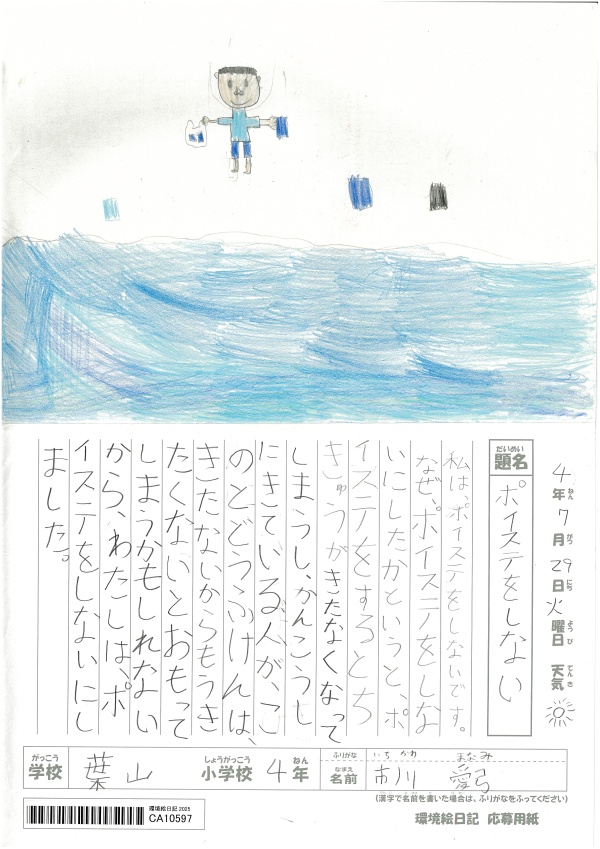 4年7月29日火曜日 天気
ねん がつ にち ようび てんき
だいめい
題名
ポイステをしない
私は、ポイステをしないです。
なぜ、ポイステをしな
いにしたかというと、ポ
イステをするとち
きゅうがきたなくなって
しまうし、かんこうし
にきている人が、ここ
のとどうふけんは、
きたないからもうき
たくないとおもって
しまうかもしれない
から、わたしは、ポ
イステをしないにし
ました。
がっこう
学校
葉山
しょうがっこう
小学校
4年
ねん
ふりがな
いちかわ まなみ
なまえ
名前
市川
(漢字で名前を書いた場合は、ふりがなをふってください)
環境絵日記 2025
CA10597
環境絵日記 応募用紙